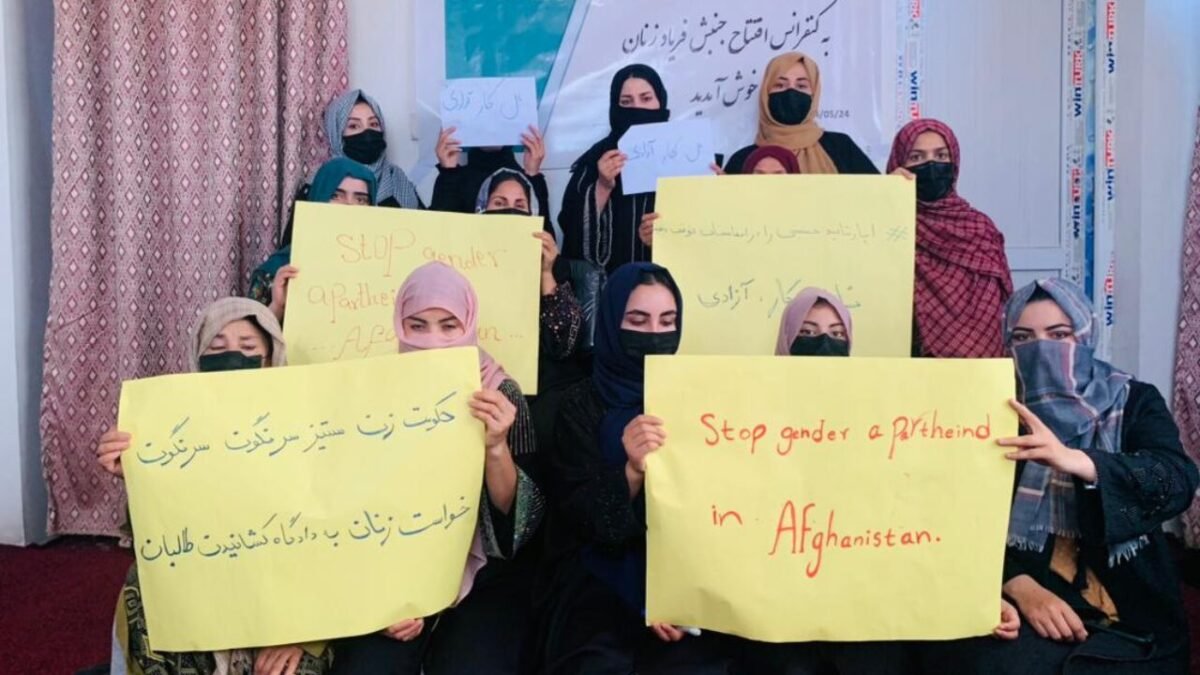 به کنفرانس افتتاح جنبش فریاد زنان
خوش آمدید
/05/24
کار آزادی
کار آزادی
Stop gender
apartheid
Afg
an ...
# اپارتاید جنسی را در افغانستان
کار، آزادی
حکومت زن ستیز سرنگون سرنگون
خواست زنان به دادگاه کشانیدن طالبان
Stop gender a partheind
in Afghanistan.
winmax
winmax
winmax